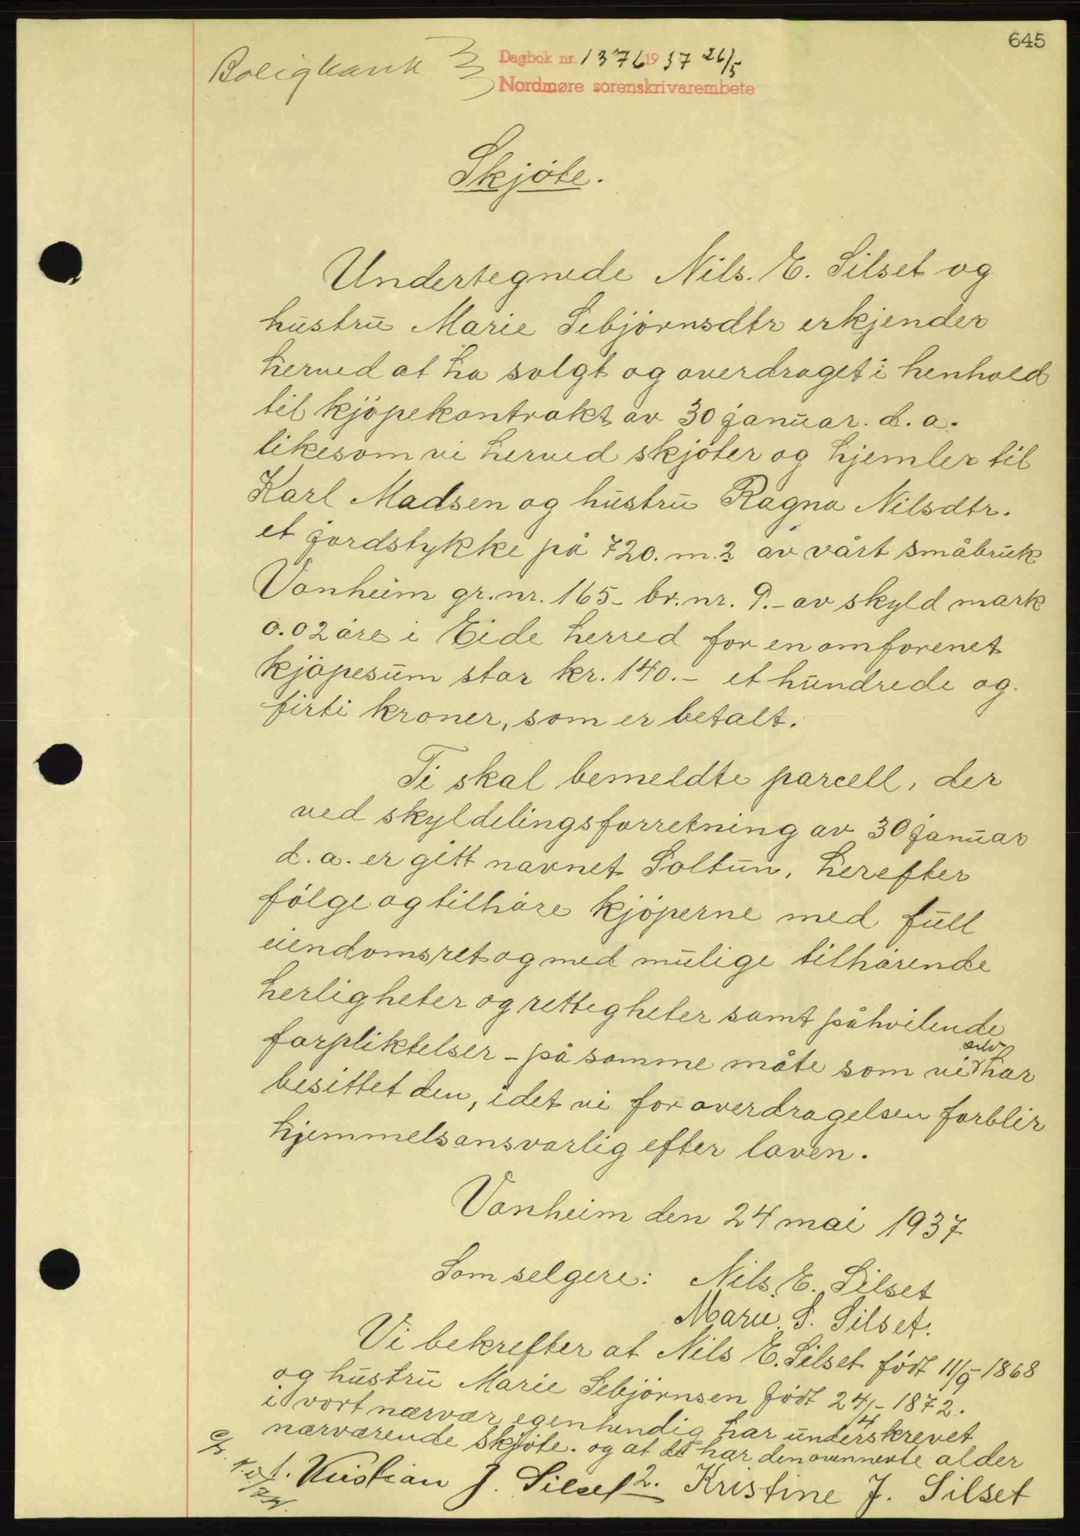 645
Boligbank
Dagbok nr. 1376 1937 26/5
Nordmøre sorenskrivarembete
Skjöte.
Undertegnede Nils. E. Silset og
hustru Marie Sebjörnsdtr erkjender
herved at ha solgt og overdraget i henhold
til kjöpekontrakt av 30 januar. d. a.
likesom vi herved skjöter og hjemler til
Karl Madsen og hustru Ragna Nilsdtr.
et jordstykke på 720. m.2 av vårt småbruk
Vonheim gr. nr. 165- br. nr. 9.- av skyld mark
0.02 öre i Eide herred for en omforenet
kjöpesum stor kr. 140.- et hundrede og
firti kroner, som er betalt.
Ti skal bemeldte parcell, der
ved skyldelingsforretning av 30 januar
d. a. er gitt navnet Soltun, herefter
fölge og tilhöre kjöperne med full
eiendomsret og med mulige tilhörende
herligheter og rettigheter samt påhvilende
forpliktelser - på samme måte som vi selv har
besittet den, idet vi for overdragelsen forblir
hjemmelsansvarlig efter loven.
Vonheim den 24 mai 1937
Som selgere: Nils. E. Silset
Marie. S. Silset.
Vi bekrefter at Nils E. Silset födt 11/9-1868
og hustru Marie Sebjörnsen födt 24/4-1872.
i vort nærvær egenhendig har underskrevet
nærværende skjöte. og at de har den ovennevte alder
1. Kristian J. Silset 2. Kristine J. Silset